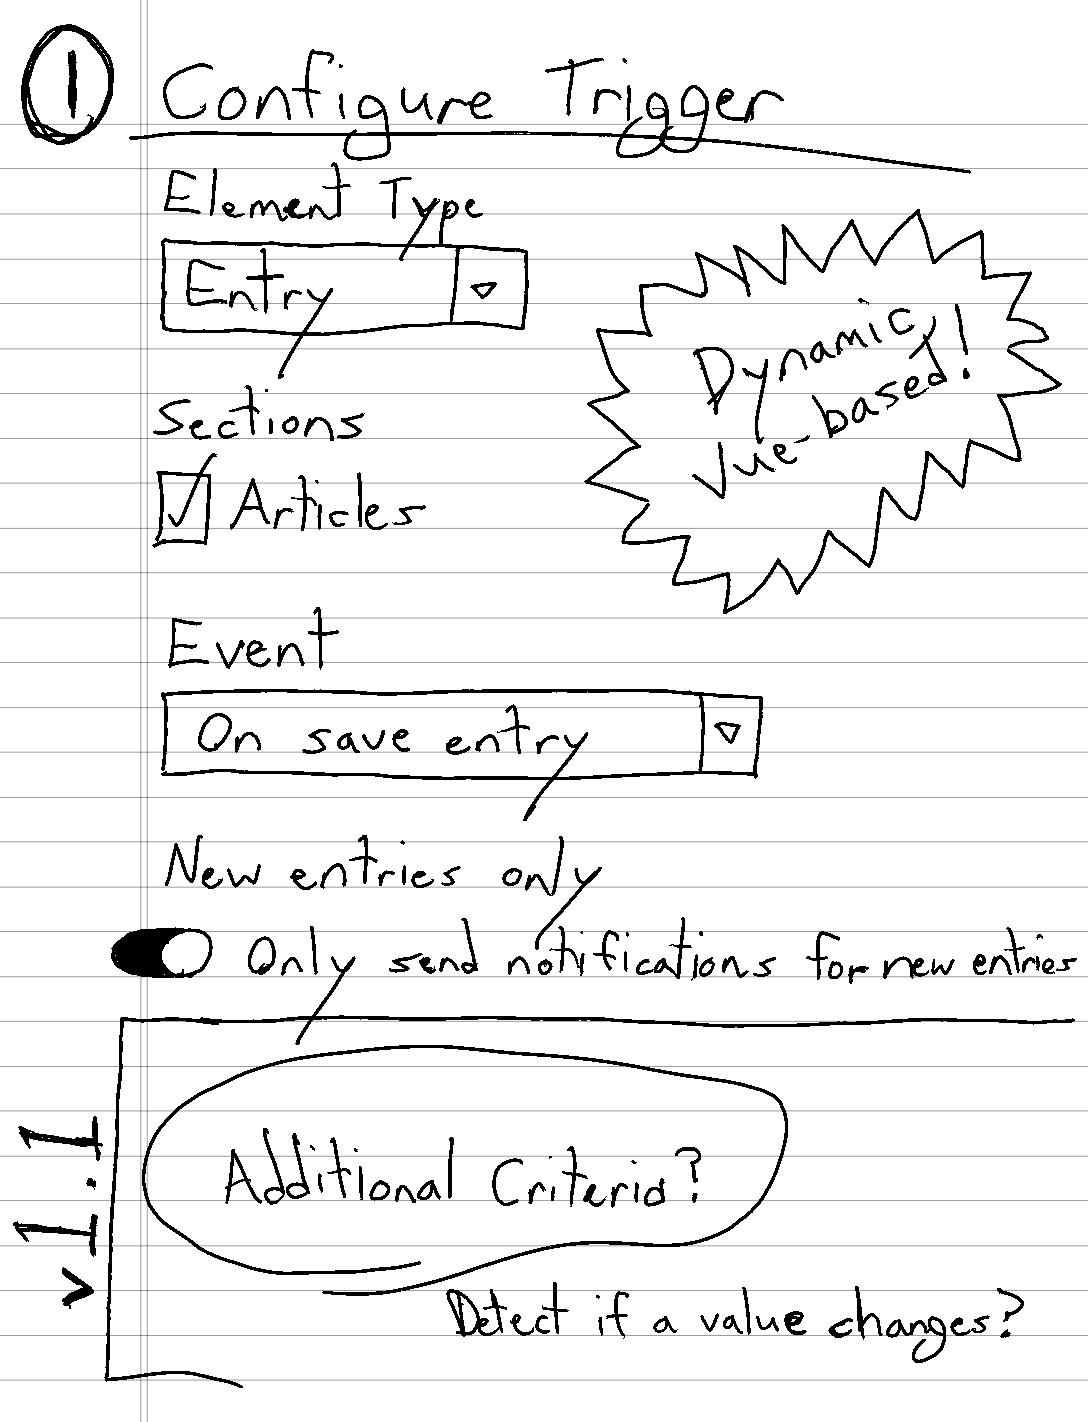 1 Configure Trigger
Element Type
Entry
Sections
Articles
Dynamic,
Vue-based!
Event
On save entry
New entries only
Only send notifications for new entries
v1.1
Additional Criteria?
Detect if a value changes?